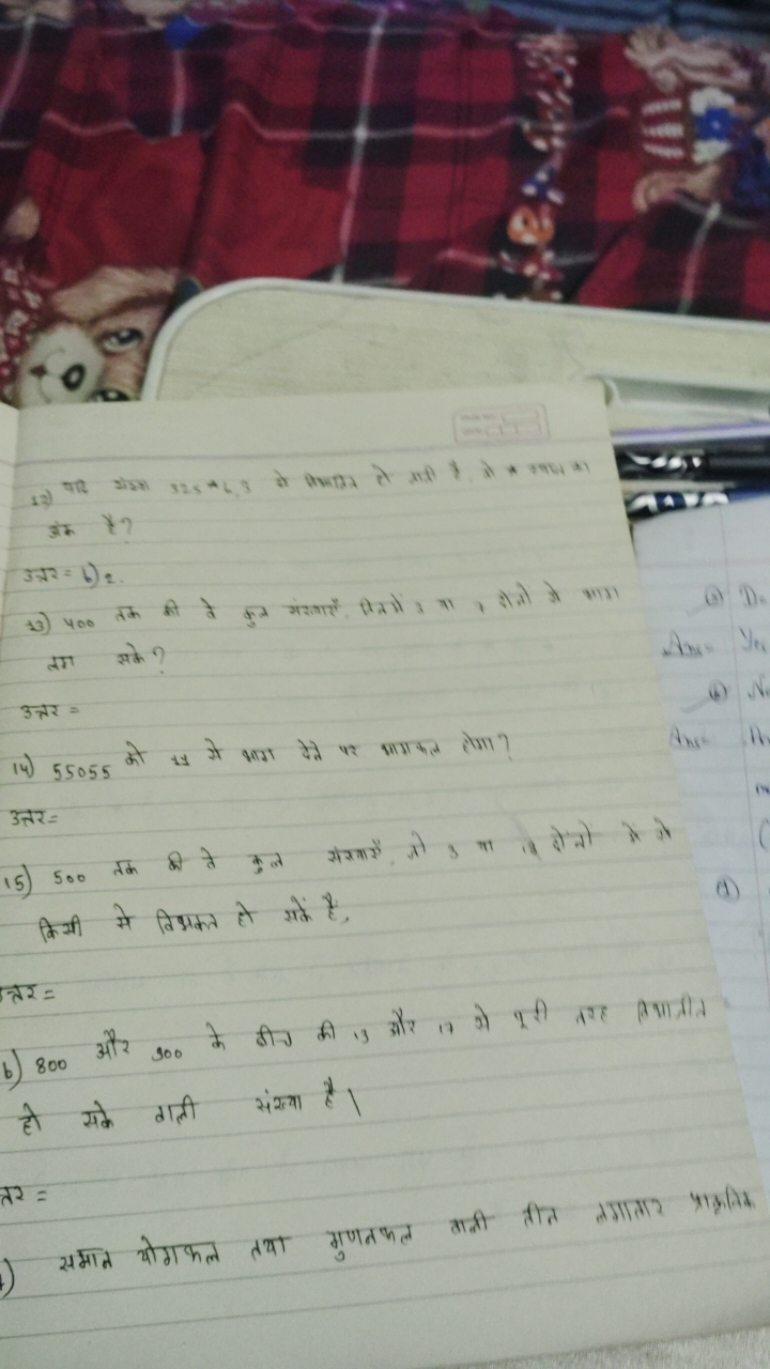 12) यदि संख्या 325*6, 3 से विभाजित हो जाती है, तो * स्थान का
अंक है?
उत्तर = b) 2.
13) 400 तक की वे कुल संख्याएँ, जिनमें 3 या 7 दोनों से भाग
लग सके?
उत्तर =
14) 55055 को 11 से भाग देने पर भागफल होगा?
उत्तर =
15) 500 तक की वे कुल संख्याएँ, जो 3 या दोनों में से
किसी से विभक्त हो सकें है,
त्तर =
6) 800 और 900 के बीच की 13 और 17 से पूरी तरह विभाजीत
हो सके वाली संख्या है।
त्तर =
) समान योगफल तथा गुणनफल वाली तीन लगातार प्राकृतिक
(a) Do
Ans = Yes
(b) No
Ans =
(
(d)